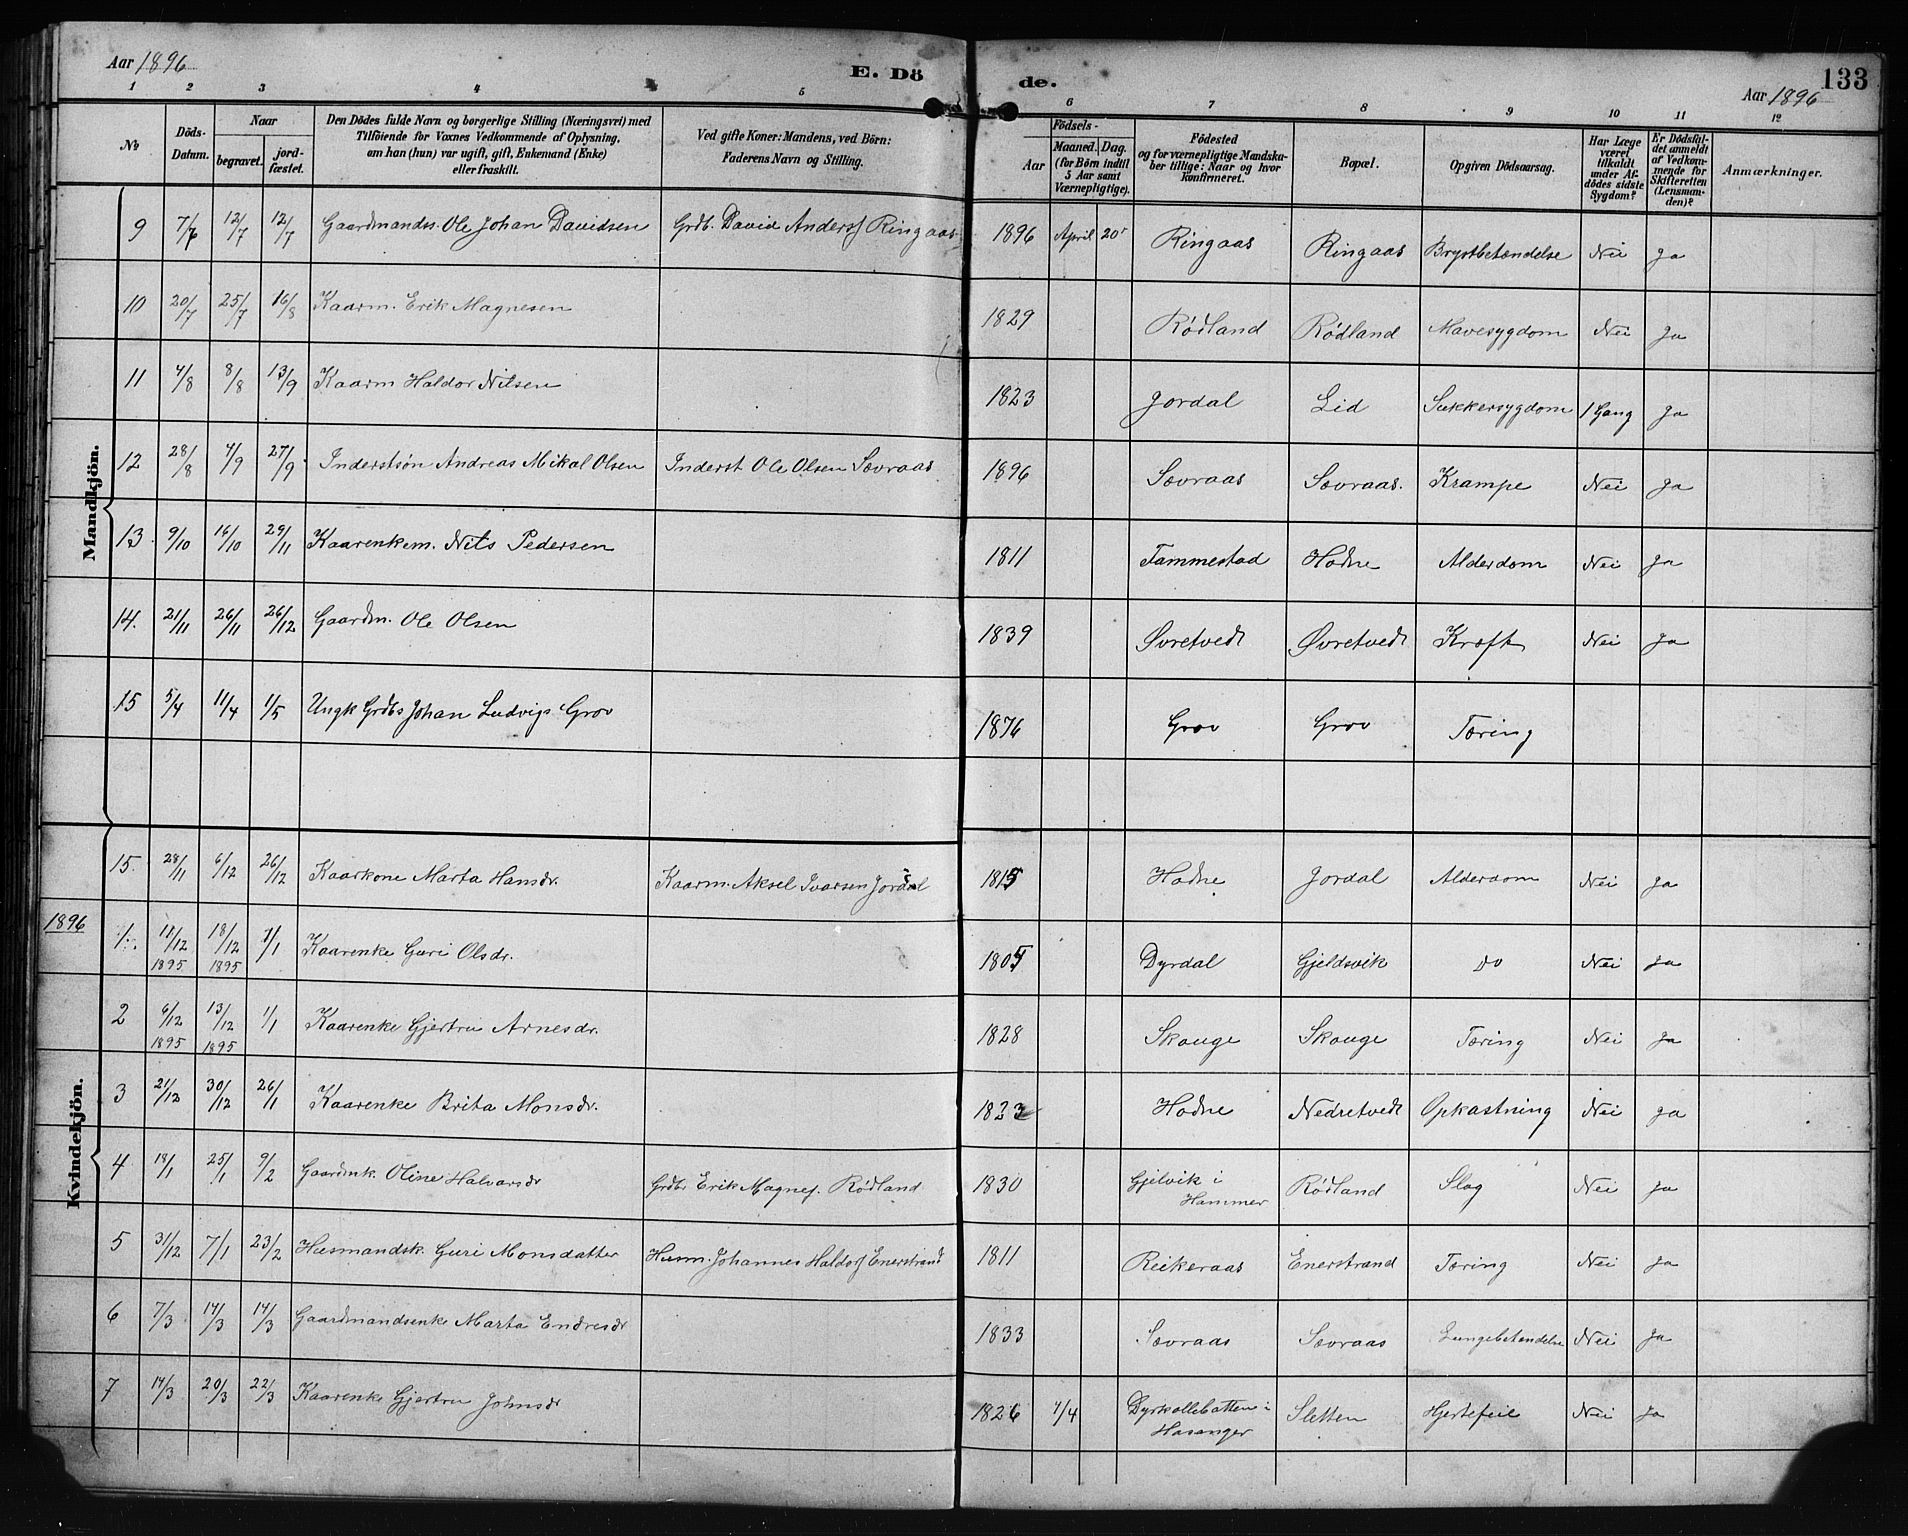 Aar 1896
E. Dö
de.
133
Aar 1896
1 2 3 4 5 6 7 8 9 10 11 12
No
Döds-Datum.
Naar
begravet. jordfæstet.
Den Dödes fulde Navn og borgerlige Stilling (Næringsvei) med
Tilföiende for Voxnes Vedkommende af Oplysning,
om han (hun) var ugift, gift, Enkemand (Enke)
eller fraskilt.
Ved gifte Koner: Mandens, ved Börn:
Faderens Navn og Stilling.
Födsels-
Aar Maaned. Dag.
(for Börn indtil
5 Aar samt
Værnepligtige).
Födested
og for værnepligtige Mandska-
ber tillige: Naar og hvor
konfirmeret.
Bopæl.
Opgiven Dödsaarsag.
Har Læge
været
tilkaldt
under Af-
dödes sidste
Sygdom?
Er Dödsfal-
det anmeldt
af Vedkom-
mende for
Skifteretten
(Lensman-
den)?
Anmærkninger.
Mandkjön.
9 7/6 12/7 12/7 Gaardmandss. Ole Johan Davidsen Grdb. David Anders Ringaas 1896 April 20 Ringaas Ringaas Brystbetændelse Nei Ja
10 20/7 25/7 16/8 Kaarm. Erik Magnesen 1829 Rödland Rödland Mavesygdom Nei Ja
11 4/8 8/8 13/9 Kaarm Haldor Nilsen 1823 Jordal Lid Sukkersygdom 1 Gang Ja
12 28/8 4/9 27/9 Inderstsön Andreas Mikal Olsen Inderst Ole Olsen Sævraas 1896 Sævraas Sævraas. Krampe Nei Ja
13. 9/10 16/10 29/11 Kaarenkem. Nils Pedersen 1811 Tammestad Hodne Alderdom Nei Ja
14. 21/11 26/11 26/12 Gaardm. Ole Olsen 1839 Øvretvedt Øvretvedt Kræft Nei Ja
15 5/4 11/4 1/5 Ungk Grdbs Johan Ludvigs Grov 1876 Grov Grov Tæring
15. 28/11 6/12 26/12 Kaarkone Marta Hansdr. Kaarm. Aksel Ivarsen Jordal 1815 Hodne Jordal Alderdom Nei Ja
1896
Kvindekjön.
1. 11/12 1895 18/12 1895 1/1 Kaarenke Guri Olsdr. 1805 Dyrdal Gjeldsvik Do Nei Ja
2 6/12 1895 13/12 1895 1/1 Kaarenke Gjertru Arnesdr. 1828 Skauge Skauge Tæring Nei Ja
3 21/12 30/12 26/1 Kaarenke Brita Monsdr. 1823 Hodne Nedretvedt Opkastning Nei Ja
4 18/1 25/1 9/2 Gaardmk. Oline Halvarsdr Grdbr Erik Magnes. Rödland 1830 Gjelvik i Hammer Rödland Slag Nei Ja
5 31/12 7/1 23/2 Husmandsk. Guri Monsdatter Husm. Johannes Haldors Enerstrand 1811 Reikeraas Enerstrand Tæring Nei Ja
6 7/3 14/3 14/3 Gaardmandsenke Marta Endresdr 1833 Sævraas Sævraas Lungebetændelse Nei Ja
7 14/3 20/3 22/3 Kaarenke Gjertru Johnsdr 1826 7/4 Dyrkollebotten i Hosanger Sletten Hjertefeil Nei Ja